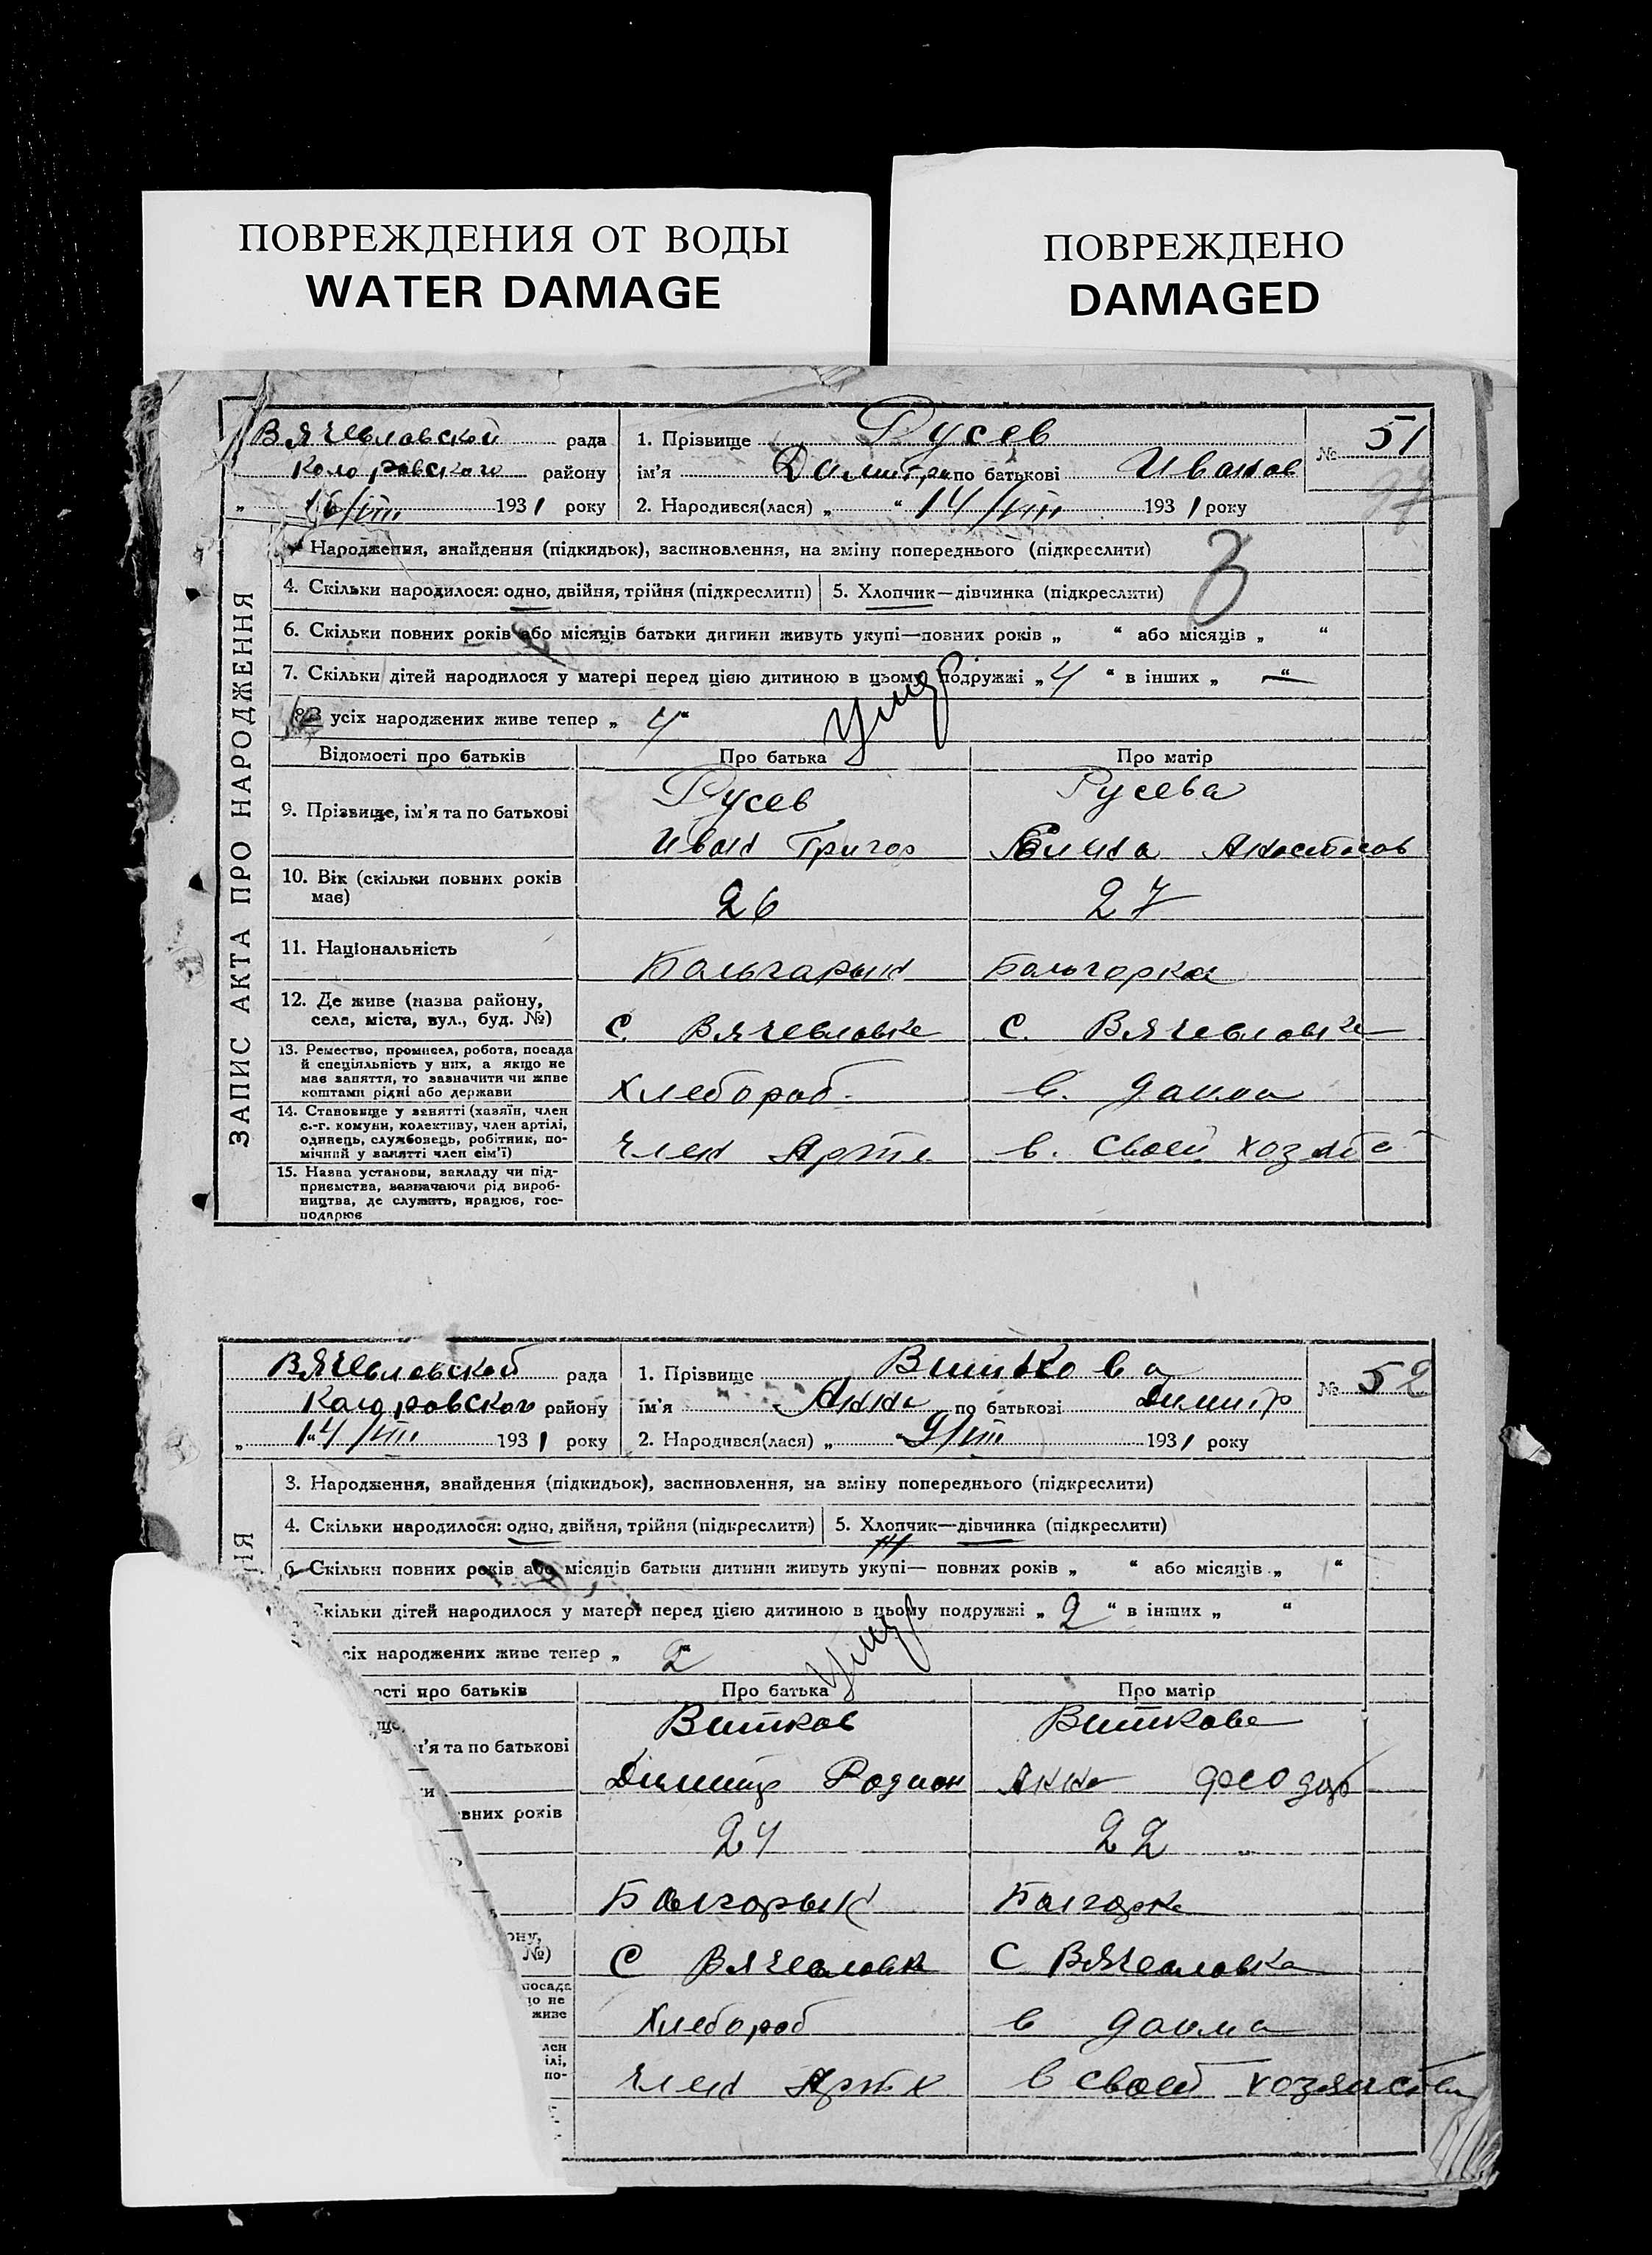 ПОВРЕЖДЕНИЯ ОТ ВОДЫ
WATER DAMAGE
ПОВРЕЖДЕНО
DAMAGED
ЗАПИС АКТА ПРО НАРОДЖЕННЯ
Вячеславской рада
района
16/VIII 1931 року
1. Прізвище Русев
ім'я по батькові Иванов
2. Народився(лася) „ “ 14/VIII 1931 року
№ 51
Народження, знайдення (підкидьок), засиновлення, на зміну попереднього (підкреслити)
3
4. Скільки народилося: одно, двійня, трійня (підкреслити) 5. Хлопчик—дівчинка (підкреслити)
6. Скільки повних років або місяців батьки дитини живуть укупі—повних років „ “ або місяців „ “
7. Скільки дітей народилося у матері перед цією дитиною в цьому подружжі „4“ в інших „—“
усіх народжених живе тепер „4“
Відомості про батьків Про батька Про матір
9. Прізвище, ім'я та по батькові
Русев Русева
Иван Григор
10. Вік (скільки повних років
має)
26 27
11. Національність
Больгарын Больгорка
12. Де живе (назва району,
села, міста, вул., буд. №)
С. Вячевловке С. Вячевловке
13. Ремество, промисел, робота, посада
й спеціяльність у них, а якщо не
має заняття, то зазначити чи живе
коштами рідні або держави
Хлебороб в. дома
14. Становище у занятті (хазяїн, член
с.-г. комуни, колективу, член артілі,
одинець, службовець, робітник, по-
мічний у занятті член сім'ї)
член Арте в. своей
15. Назва установи, закладу чи під-
приємства, зазначаючи рід вироб-
ництва, де служить, працює, гос-
подарює
Вячеславской рада
району
14/VIII 1931 року
1. Прізвище Виткова
ім'я Анна по батькові Димитр
2. Народився(лася) „ “ 9/VIII 1931 року
№ 52
3. Народження, знайдення (підкидьок), засиновлення, на зміну попереднього (підкреслити)
4. Скільки народилося: одно, двійня, трійня (підкреслити) 5. Хлопчик—дівчинка (підкреслити)
6. Скільки повних років або місяців батьки дитини живуть укупі— повних років „ “ або місяців „ “
Скільки дітей народилося у матері перед цією дитиною в цьому подружжі „2“ в інших „ “
сіх народжених живе тепер „2“
ості про батьків Про батька Про матір
м'я та по батькові
Витков Виткова
Родион Анна Феодор
вних років
24 22
Болгорын Болгорка
ону,
№)
С Вячесловк С Вячесловка
посада
що не
живе
Хлебороб в дома
лен
ілі,
по-
член Артк в своей хозяйстве